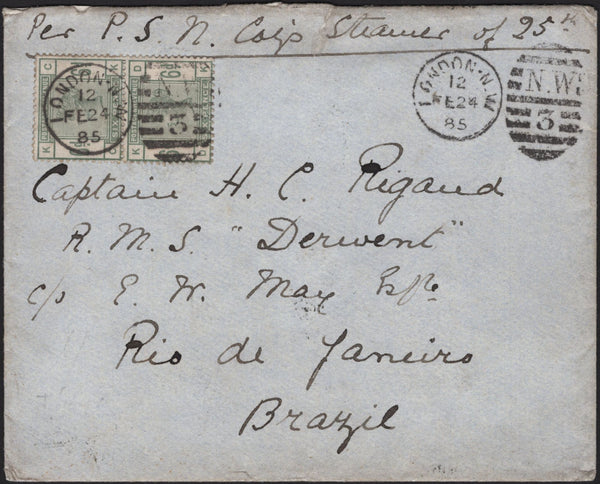 Per P. S. N. Coy's Steamer of 25th
LONDON-N.W
12
FE24
85
3
LONDON-N.W
12
FE24
85
N.W.
3
Captain H. C. Rigaud
R. M. S. "Derwent"
c/o E. W. May Esqre
Rio de Janeiro
Brazil